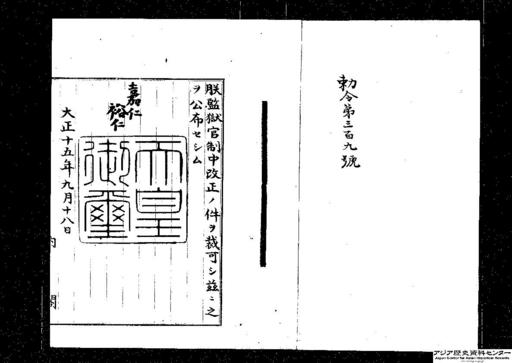 勅令第三百九號
朕監獄官制中改正ノ件ヲ裁可シ茲ニ之
ヲ公布セシム
嘉仁
裕仁
天皇
御璽
大正十五年九月十八日
内閣
アジア歴史資料センター
Japan Center for Asian Historical Records